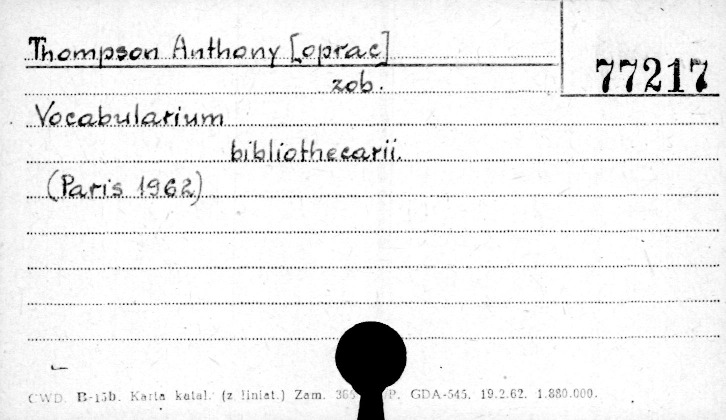 Thompson Anthony [oprac]
77217
zob.
Vocabularium
bibliothecarii.
(Paris 1962)
CWD. B-15b. Karta katal. (z liniat.) Zam. P. GDA-545. 19.2.62. 1.880.000.